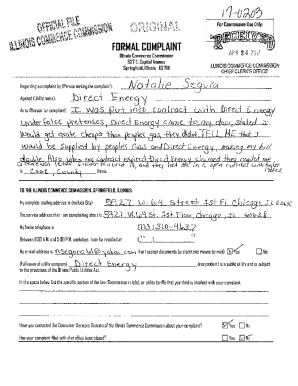 17-0203
OFFICIAL FILE
ILLINOIS COMMERCE COMMISSION
ORIGINAL
For Commission Use Only:
RECEIVED
FORMAL COMPLAINT
Illinois Commerce Commission
527 E. Capitol Avenue
Springfield, Illinois 62701
ILLINOIS COMMERCE COMMISSION
CHIEF CLERK'S OFFICE
Regarding a complaint by (Person making the complaint): Natalie Segura
Against (Utility name): Direct Energy
As to (Reason for complaint) I was put into contract with Direct Energy
under false pretenses, Direct Energy came to my door, stated I
would get quote cheaper than peoples gas, they didn't TELL ME that I
would be supplied by peoples Gas and Direct Energy, making my bill
double. Also when my contract expired Direct Energy claimed they
in Cook, County Illinois.
TO THE ILLINOIS COMMERCE COMMISSION, SPRINGFIELD, ILLINOIS:
My complete mailing address is (include City) 5927 W. 64 Street 1st Fl. Chicago, IL 60638
The service address that I am complaining about is 5927 W. 64 St. 1st Floor, Chicago, IL 60638
My home telephone is (773) 510-4637
Between 8:30 A.M. and 5:00 P.M. weekdays, I can be reached at ( )
My e-mail address is I will accept documents by electronic means (e-mail) Yes No
(Full name of utility company) Direct Energy (respondent) is a public utility and is subject
to the provisions of the Illinois Public Utilities Act.
In the space below, list the specific section of the law, Commission rule(s), or utility tariffs that you think is involved with your complaint.
Have you contacted the Consumer Services Division of the Illinois Commerce Commission about your complaint? Yes No
Has your complaint filed with that office been closed? Yes No